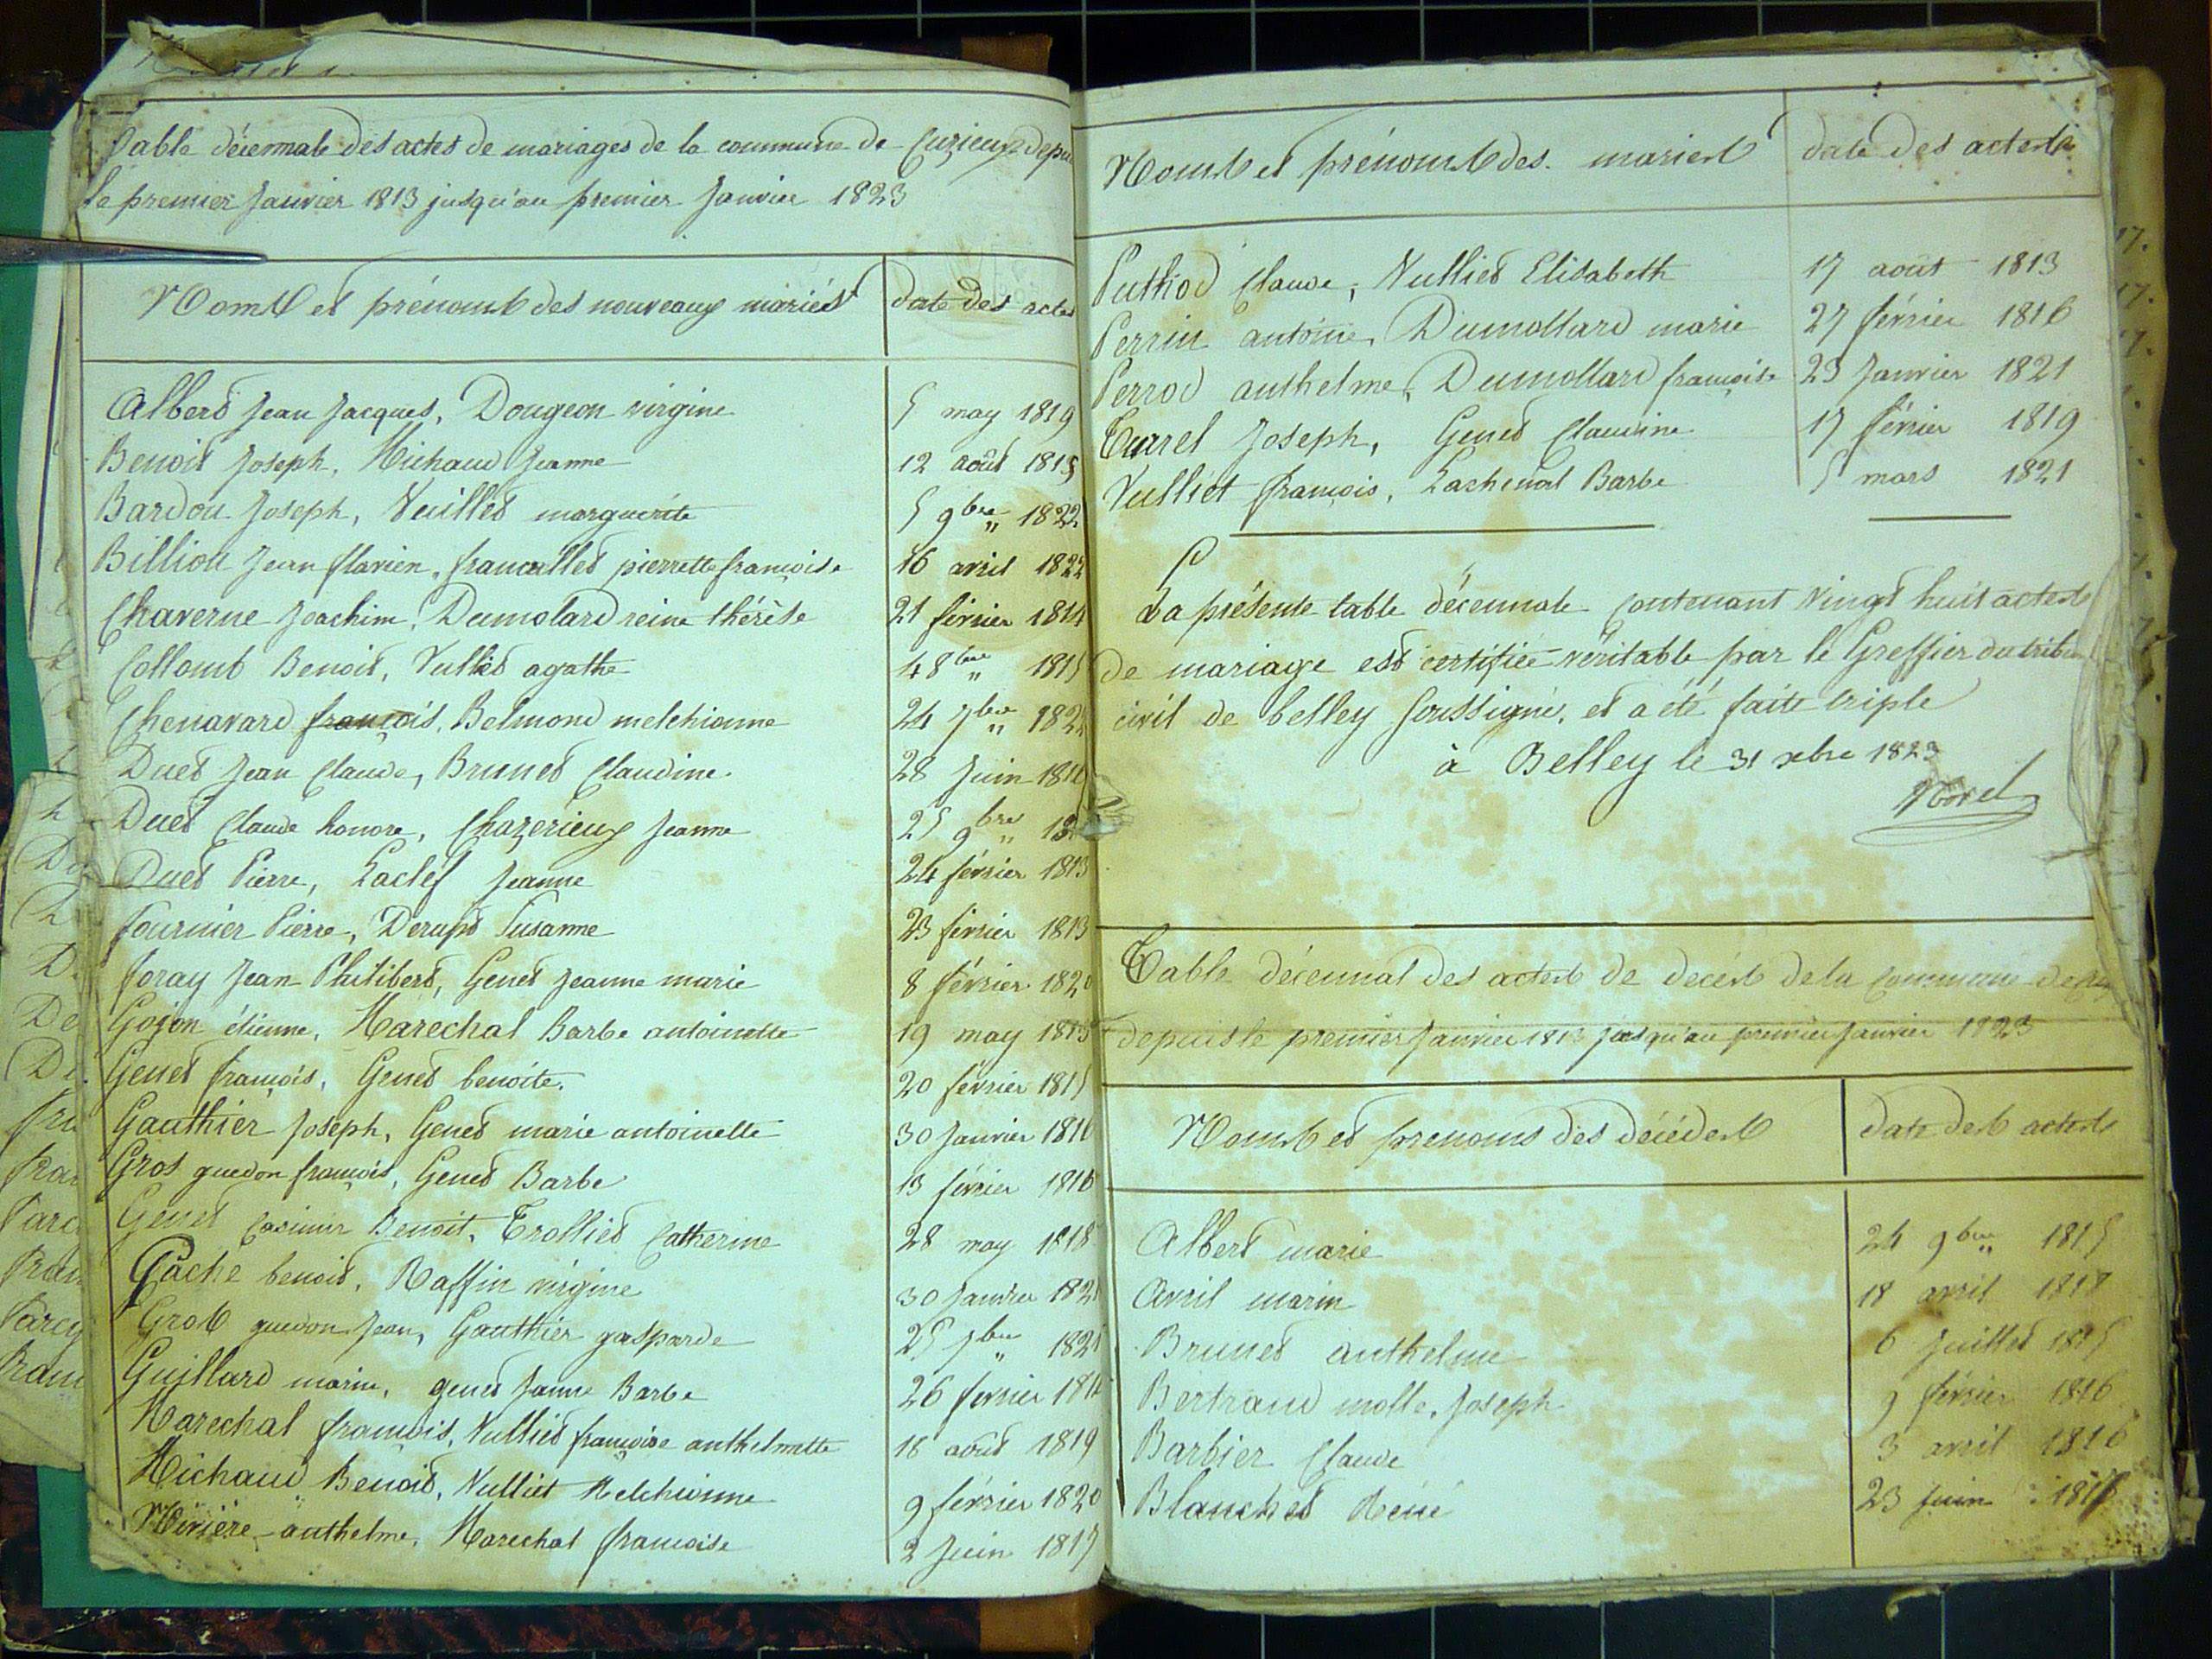 Table décennale des actes de mariages de la commune de Cuzieux depu
le premier Janvier 1813 jusqu'au premier Janvier 1823
Noms et prénoms des nouveaux mariés date des actes
Albert Jean Jacques, Dougeon virgine 5 may 1819
Benoit Joseph, Michaud Jeanne 12 août 1815
Bardou Joseph, Vuillet marguerite 5 9bre 1822
Billiou Jean flavien, francallet pierrette françoise 16 avril 1822
Chaverne Joachim, Dumolard reine thérèse 21 février 1814
Collomb Benoit, Vulliet agathe 4 8bre 1815
Chenavard françois, Belmond melchionne 24 7bre 182
Duet Jean Claude, Brunet Claudine 28 Juin 181
Duet Claude honore, Chazerieux Jeanne 25 9bre
Duet Pierre, Laclef Jeanne 24 février 1813
fournier Pierre, Derupt Susanne 23 février 1813
foray Jean Philibert, Genet Jeanne marie 8 février 1820
Gojon étienne, Marechal Barbe antoinette 19 may 1813
Genet françois, Genet benoite. 20 février 1815
Gauthier Joseph, Genet marie antoinette 30 Janvier 1816
Gros guedon françois, Genet Barbe 13 février 1816
Genet Casimir Benoit, Trolliet Catherine 28 may 1818
Gache benoit, Raffin virgine 30 Janvier 182
Gros guedon Jean, Gauthier gasparde 25 7bre 182
Guillard marin, genet Janne Barbe 26 février 181
Marechal françois, Vulliet françoise anthelmette 16 août 1819
Michaud Benoit, Vulliet Melchionne 9 février 1820
Mivière anthelme, Marechal francoise 2 Juin 1817
Noms et prénoms des mariés date des actes
Puthod Claude, Vulliet Elisabeth 17 août 1813
Perrin antoine, Dumollard marie 27 février 1816
Perrod anthelme, Dumollard françoise 23 Janvier 1821
Turel Joseph, Genet Claudine 17 février 1819
Vulliet françois, Lachenal Barbe 5 mars 1821
La présente table décennale contenant Vingt huit actes
de mariage est certifiée véritable par le Greffier du tribu
civil de belley soussigné, et a été faite triple
à Belley le 31 xbre 1823
Table décennal des actes de decès de la commune de
depuis le premier Janvier 1813 jusqu'au premier Janvier 1823
Noms et prenoms des décédés date des actes
Albert marie 24 9bre 1815
Avril marin 18 avril 1818
Brunet anthelme 6 Juillet 1815
Bertrand molle, Joseph 9 février 1816
Barbier Claude 3 avril 1816
Blanchet Réné 23 Juin 181